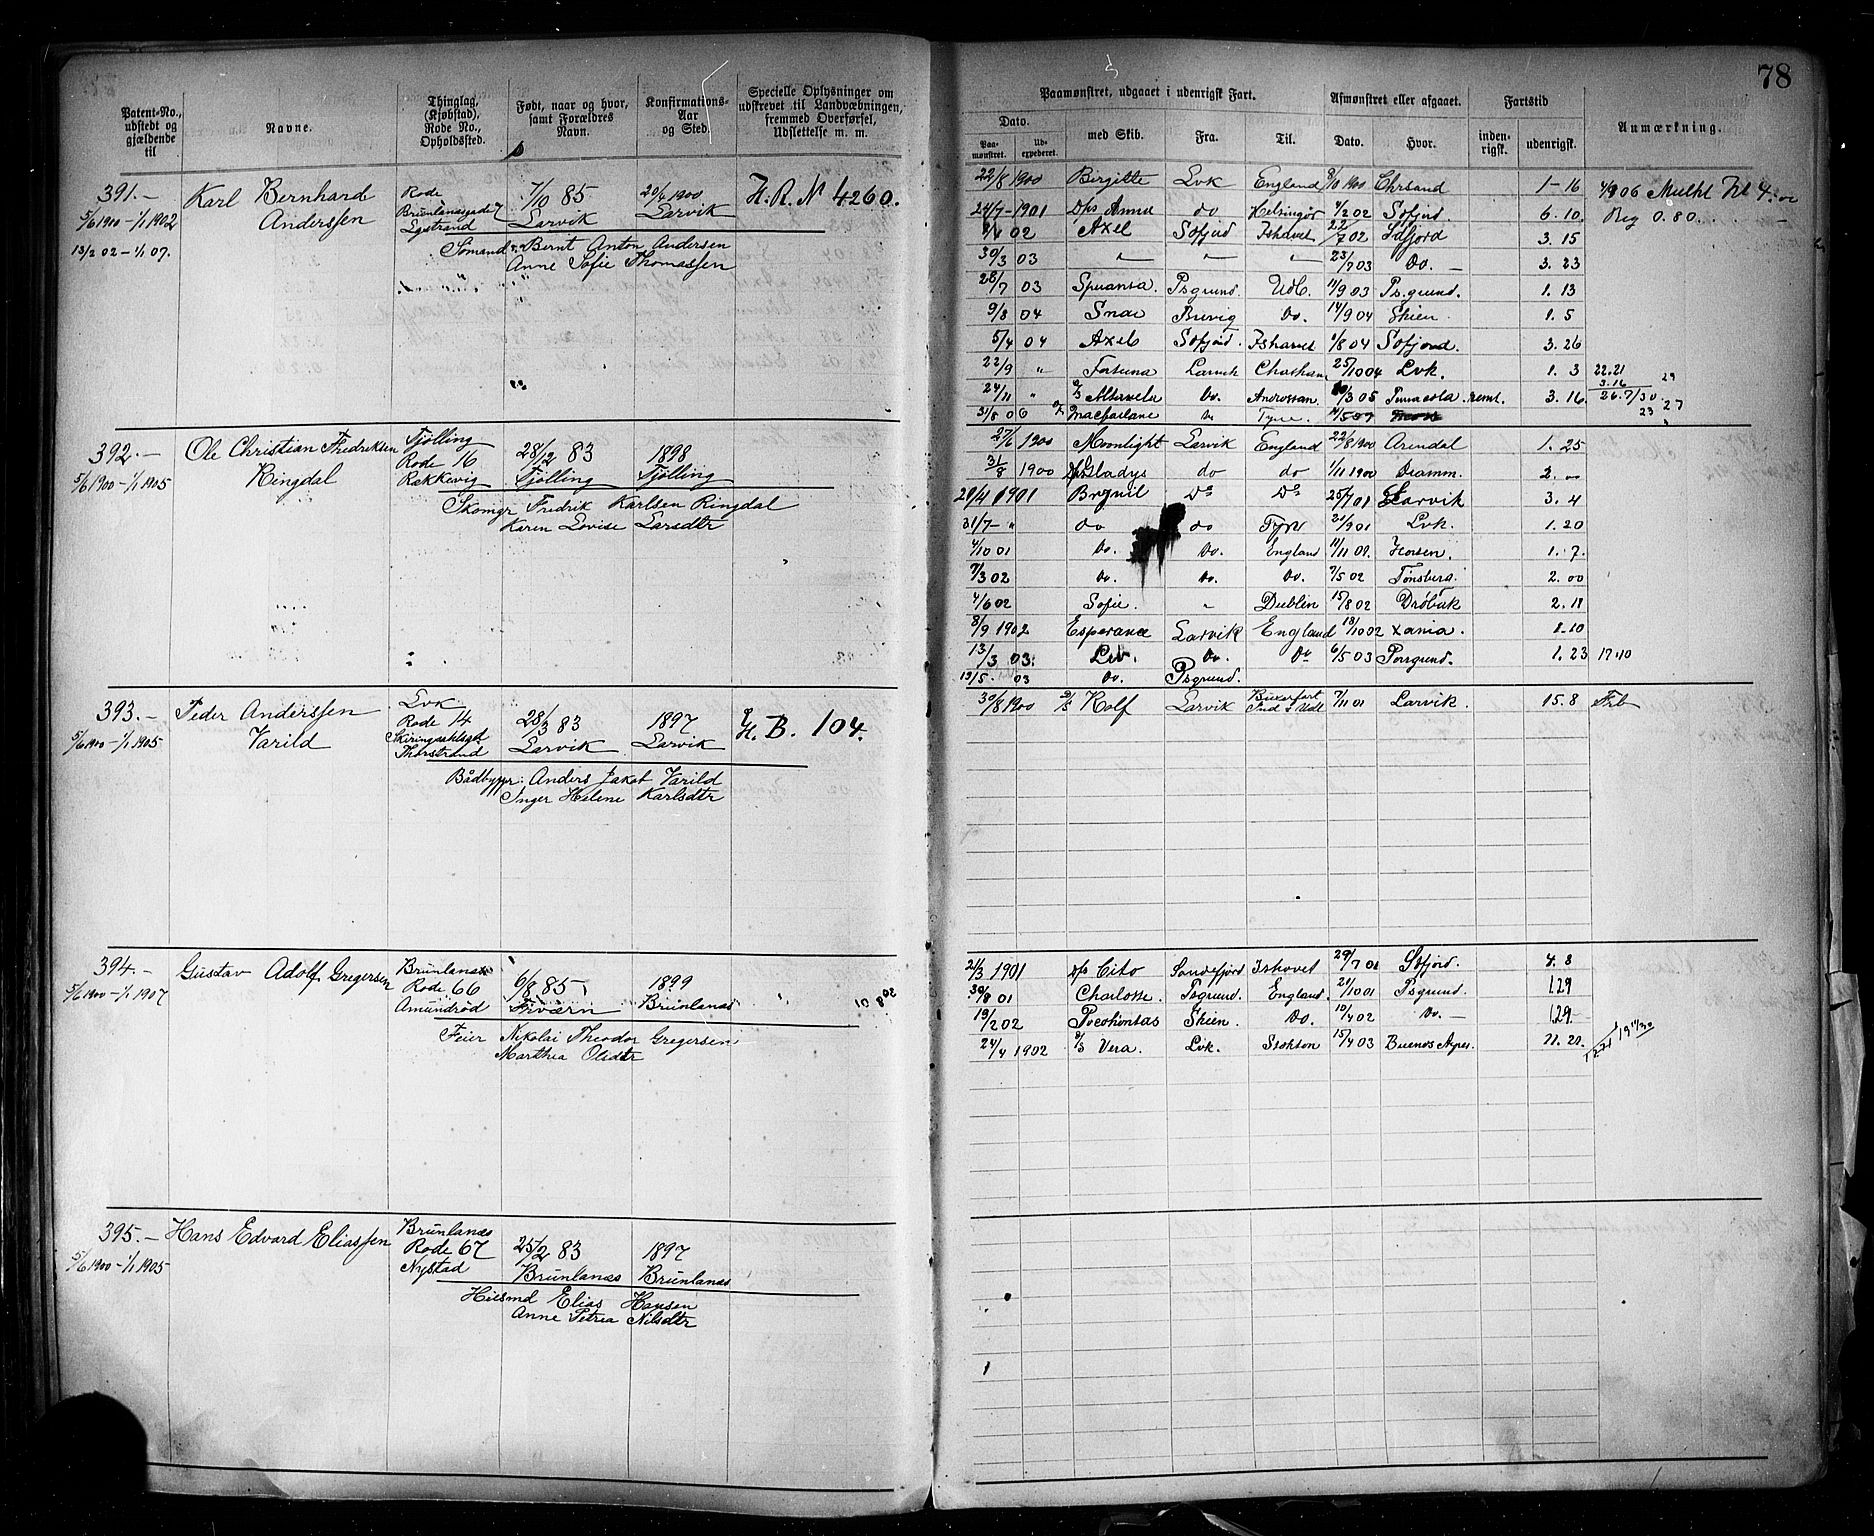 78
Patent-No., udstedt og gjældende til
Navne.
Thinglag, (Kjøbstad), Rode No., Opholdssted.
Født, naar og hvor, samt Forældres Navn.
Konfirmations-Aar og Sted.
Specielle Oplysninger om udskrevet til Landværningen, fremmed Overførsel, Udslettelse m. m.
Paamønstret, udgaaet i udenrigsk Fart.
Afmønstret eller afgaaet.
Fartstid
Anmærkning.
Dato.
Paa-mønstret.
Ud-expederet.
med Skib.
Fra.
Til.
Dato.
Hvor.
inden-rigsk.
udenrigsk.
391.-
5/6 1900 - 1/1 1902
13/2 02 - 1/1 07.
Karl Bernhard
Anderssen
Rode
Brunlanesgade 7
7/10 85
Larvik
20/4 1900
Larvik
H. R. N 4260.
Sømand Bernt Anton Andersen
Anne Sofie Thomassen
22/8 1900 Birgitte Lvk England 8/10 1900 Chrsand 1-16
24/7-1901 Anna do Helsingør 02 Sofjord 6.10.
02 Axel Sofjord Ishavet 22/7 02 Sdfjord 3.15
30/3 03 " " " 23/7 03 Do. - 3.23
28/7 03 Psgrund. Udl. 11/9 03 Psgrund. 1.13
9/8 04 Snar Brevig Do. 14/9 04 Skien 1.5
5/4 04 Axel Sofjord. Ishavet 1/8 04 Sofjord. 3.26
22/9 " Fortuna Larvik 25/10 04 Lvk. 1.3 22.21
24/11 " Do. Androssan 3 05 Pennacola 3.16
31/8 06 Macfarlane Do Tyne.
392.-
5/6 1900 - 1/1 1905
Ole Christian Fredriksen
Ringdal
Tjølling
Rode 16
Rekkevig
28/12 83
Tjølling
1898
Tjølling
Skomgr Fredrik Karlsen Ringdal
Karen Lovise Larsdtr
27/6 1900 Moonlight Larvik England 22/8 1900 Arendal 1.25
31/8 1900 Gladys do do 1/11 1900 Dramm. 2.00
29/4 1901 Do Do 25/7 01 Larvik 3.4
31/7- " do do Tyne 21/9 01 Lvk. 1.20
4/10 01 Do. Do. England 11/11 01. Horsen. 1.7.
7/3 02 Do. Do. Do. 7/5 02 Tønsberg. 2.00
4/6 02 Sofie. " Dublin 15/8 02 Drøbak 2.11
8/9 1902 Esperance Larvik England 18/10 02 Xania. 1.10
13/3 03. Liv. Do. Do 6/5 03 Porsgrund. 1.23 17.10
19/5. 03 Do. Psgrund.
393.-
5/6 1900 - 1/1 1905
Peder Anderssen
Varild
Lvk
Rode 14
Skiringsahlsgd
Thorstrand
28/3 83
Larvik
1897
Larvik
H. B. 104.
Bådbygger: Anders Jakob Varild
Inger Helene Karlsdtr
30/8 1900 Rolf Larvik Buxerfart Ind & Udl 7/11 01 Larvik. 15.8
394.-
5/6 1900 - 1/1 1907
Gustav Adolf Gregersen
Brunlanes
Rode 66
Amundrød
6/8 85
1899
Brunlanes
Feier Nikolai Theodor Gregersen
Marthea Olsdtr
21/3 1901 Cito Sandefjord Ishavet 29/7 01 Sofjord. 4.8
30/8 01 Charlotte. Psgrund. England. 21/10 01 Psgrund. 1.29
19/2 02 Pocohontas Skien. Do. 10/4 02 Do. - 1.29
24/4 1902 Vera. Lvk. Stokton 15/4 03 Buenos Ayres. 11.21.
395.-
5/6 1900 - 1/1 1905
Hans Edvard Eliassen
Brunlanes
Rode 67
Nystad
25/2 83
Brunlanes
1897
Brunlanes
Husmd Elias Hansen
Anne Petrea Nilsdtr